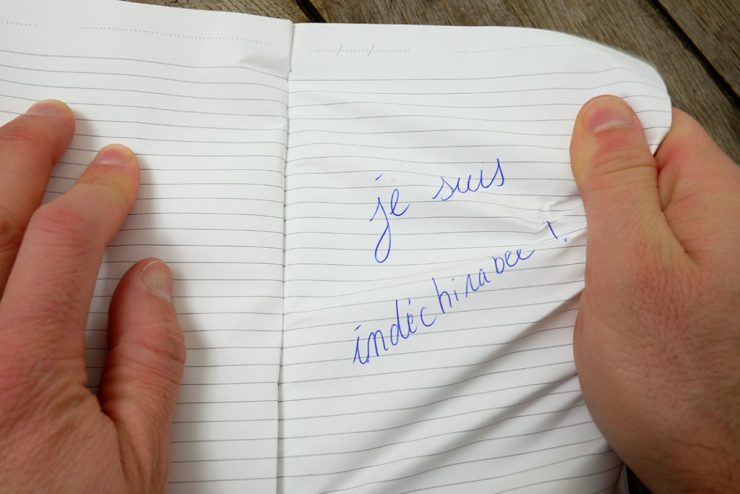 je suis
indéchirable !